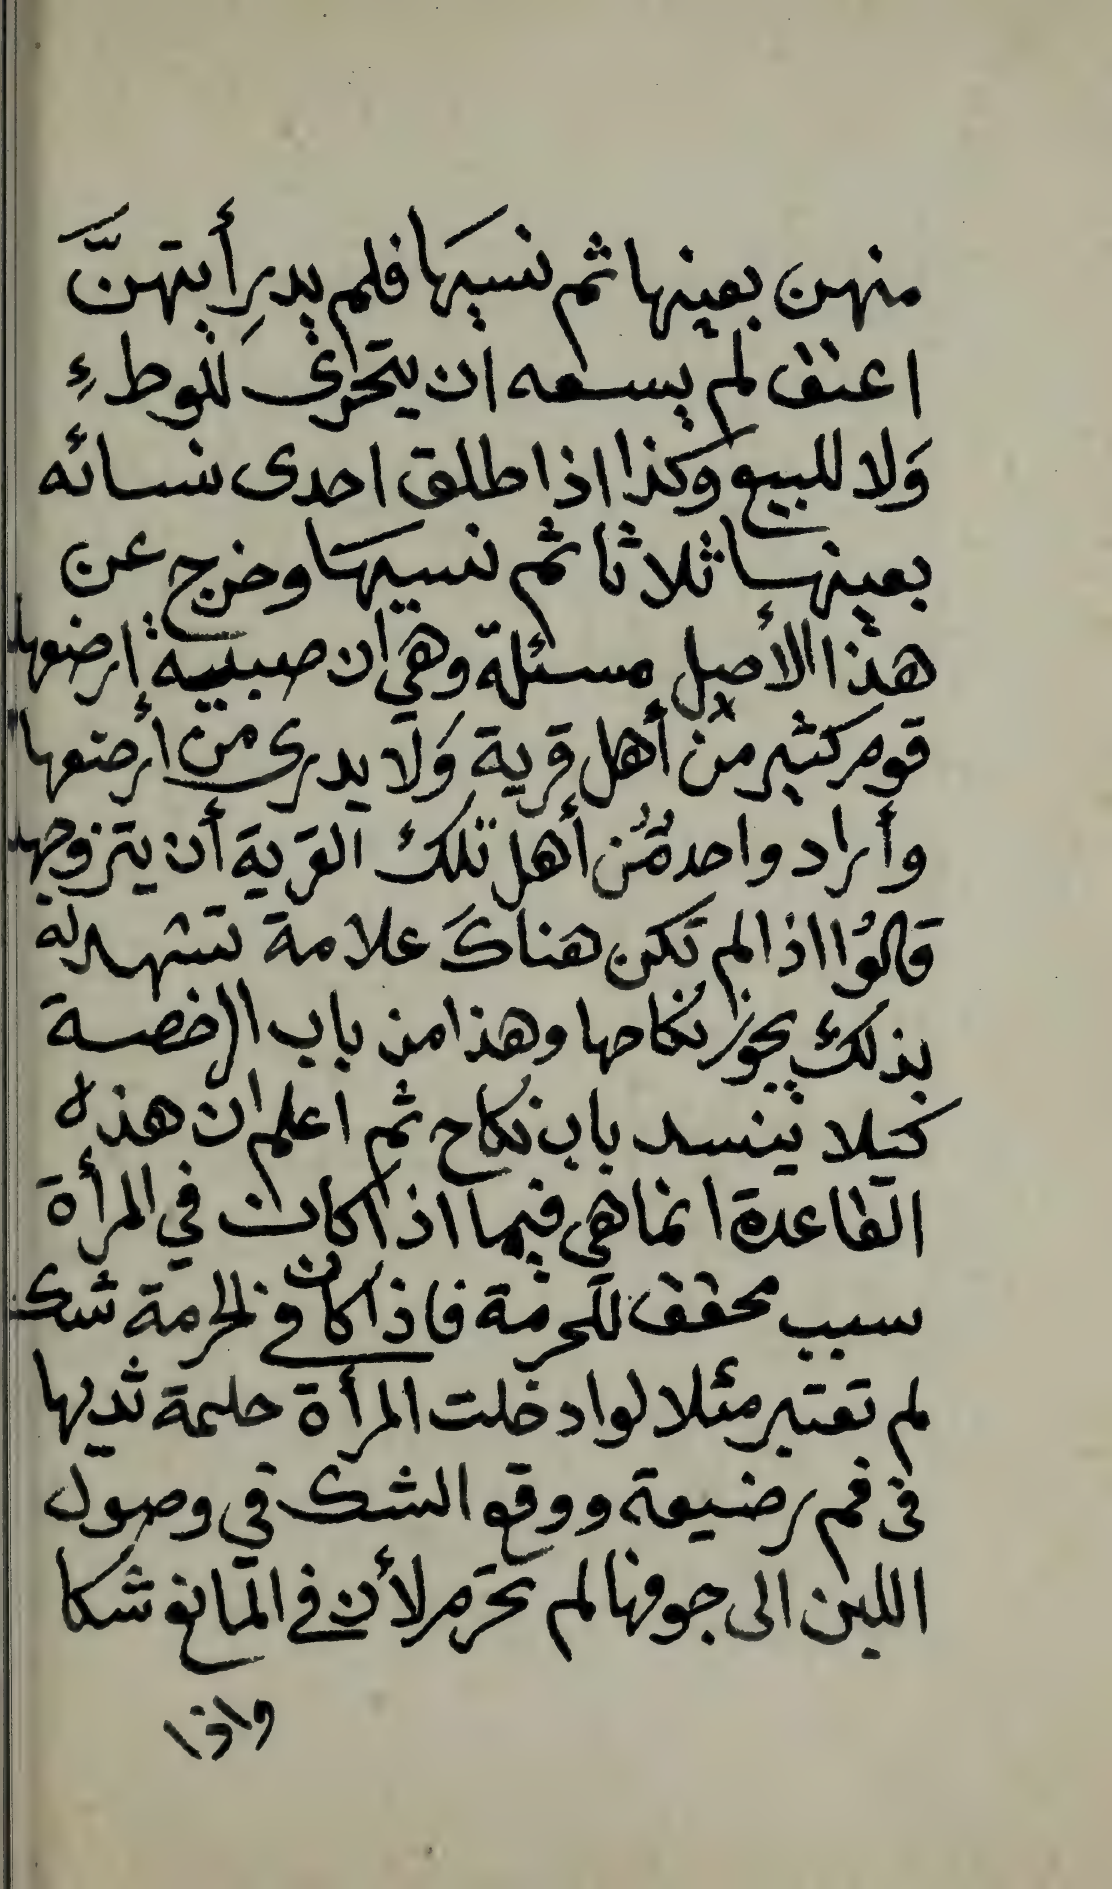 منهن بعينها ثم نسيها فلم يدرِ أيتهنَّ
اعتق لم يسعه ان يتحرى للوطءِ
وَلا للبيع وكذا اذا طلق احدى نسائه
بعينها ثلاثا ثم نسيها وخرج عن
هذا الأصل مسئلة وهي ان صبية ارضعها
قوم كثير من أهل قرية وَلا يدرى من أرضعها
وأراد واحدٌ من أهل تلك القرية أن يتزوجها
قالوُا اذا لم تكن هناكَ علامة تشهد له
بذلك يجوز نكاحها وهذا من باب الرخصة
كيلا ينسد باب نكاح ثم اعلم ان هذه
القاعدة انما هي فيما اذا كان في المرأة
سبب محقق للحرمة فاذا كان في الحرمة شك
لم تعتبر مثلا لو ادخلت المرأة حلمة ثديها
فى فم رضيعة ووقع الشك في وصول
اللبن الى جوفها لم تحرم لأن في المانع شكا
واذا